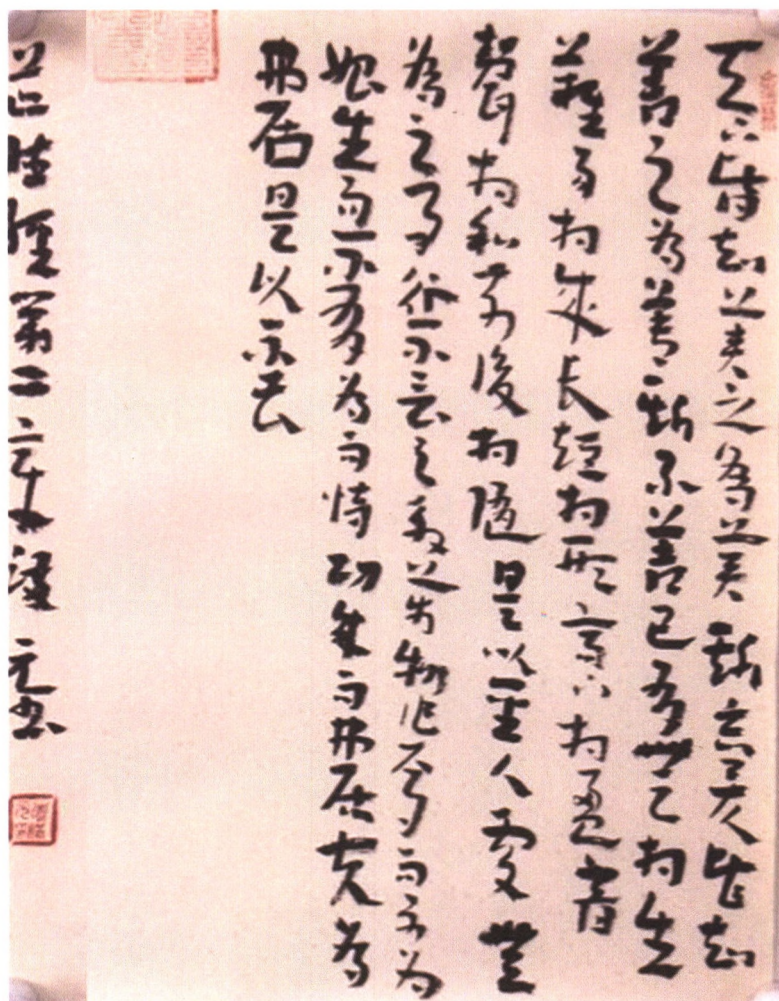 天下皆知美之為美斯惡矣皆知
善之為善斯不善已有無相生
難易相成長短相形高下相盈音
聲相和前後相隨是以聖人處無
為之事行不言之教萬物作焉而不為
始生而不有為而不恃功成而弗居夫唯
弗居是以不去
道德經第二章 元書